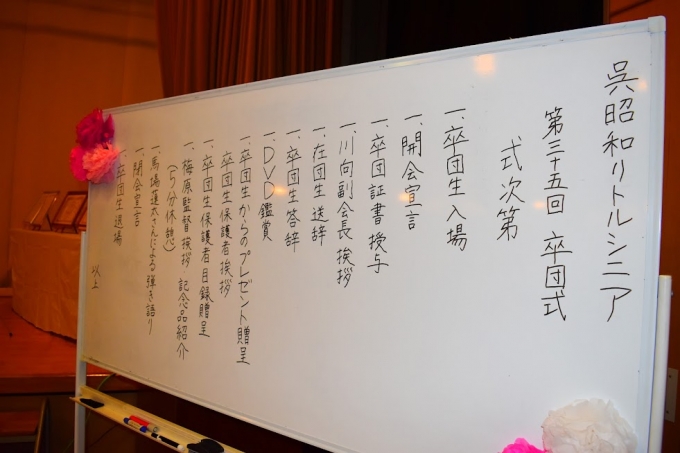 呉昭和リトルシニア
第三十五回 卒団式
式次第
一、卒団生入場
一、開会宣言
一、卒団証書授与
一、川向副会長挨拶
一、在団生送辞
一、卒団生答辞
一、DVD鑑賞
一、卒団生からのプレゼント贈呈
卒団生保護者挨拶
一、卒団生保護者目録贈呈
一、梅原監督挨拶 記念品紹介
(5分休憩)
一、馬場蓮太さんによる弾き語り
一、閉会宣言
一、卒団生退場
以上